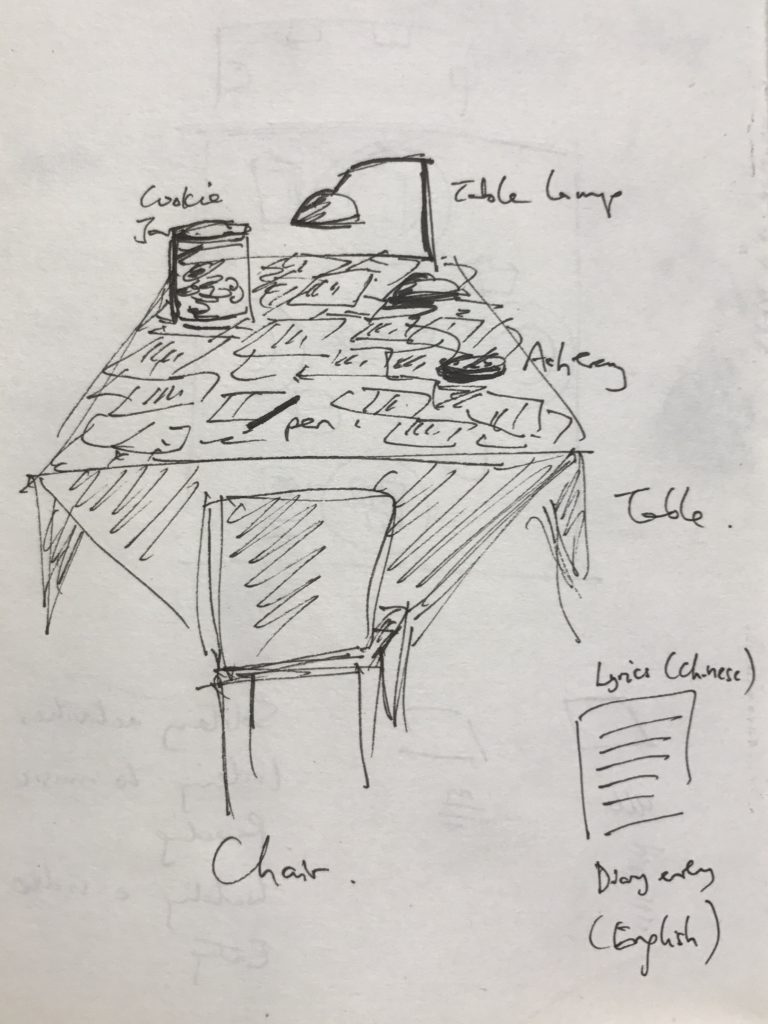 Cookie
Jar
Table lamp
Ashtray
pen.
Table.
Lyrics (Chinese)
Chair.
Diary entry
(English)